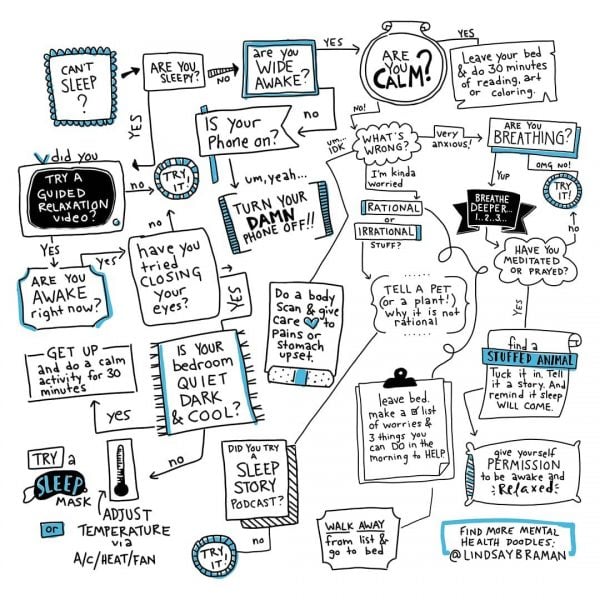 CAN'T
SLEEP
?
ARE YOU
SLEEPY?
NO
are you
WIDE
AWAKE?
YES
ARE
YOU
CALM?
YES
Leave your bed
& do 30 minutes
of reading, art
or coloring.
YES
IS Your
Phone on?
no
NO!
um...
IDK
WHAT'S
WRONG?
very
anxious!
ARE YOU
BREATHING?
OMG NO!
YUP
TRY
IT!
did you
TRY A
GUIDED
RELAXATION
video?
no
TRY
IT!
um, yeah...
TURN YOUR
DAMN
PHONE OFF!!
I'm kinda
worried
RATIONAL
or
IRRATIONAL
STUFF?
BREATHE
DEEPER...
1..2..3...
no
HAVE YOU
MEDITATED
OR PRAYED?
YES
YES
ARE YOU
AWAKE
right now?
yes
no
have you
tried
CLOSING
your
eyes?
YES
Do a body
Scan & give
care to
Pains or
Stomach
upset.
TELL A PET
(or a plant!)
why it is not
rational
find a
STUFFED ANIMAL
Tuck it in. Tell
it a story. And
remind it sleep
WILL COME.
GET UP
and do a calm
activity for 30
minutes
yes
IS YOUR
bedroom
QUIET
DARK
& COOL?
no
leave bed.
make a list
of worries &
3 things you
can DO in the
morning to HELP
TRY a
SLEEP
MASK
or
ADJUST
TEMPERATURE
via
A/C/HEAT/FAN
DID YOU TRY
A
SLEEP
STORY
PODCAST?
no
TRY
IT!
give yourself
PERMISSION
to be awake and
Relaxed
WALK AWAY
from list &
go to bed
FIND MORE MENTAL
HEALTH DOODLES:
@LINDSAYBRAMAN